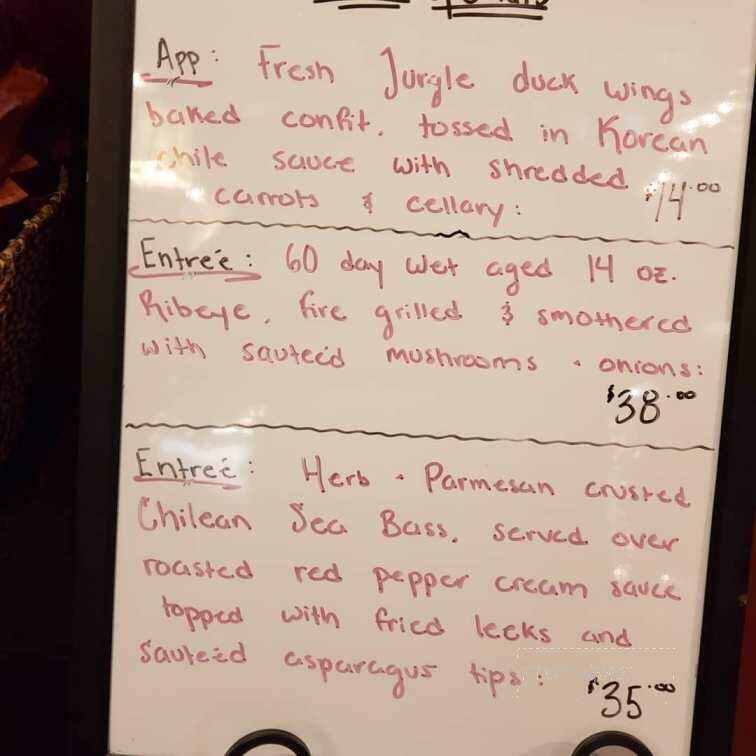 App: Fresh Jurgle duck wings
baked confit, tossed in Korean
chile sauce with shredded
carrots & cellary: $14.00
Entreé: 60 day wet aged 14 oz.
Ribeye, fire grilled & smothered
with sauteéd mushrooms + onions:
$38.00
Entreé: Herb + Parmesan crusted
Chilean Sea Bass, served over
roasted red pepper cream sauce
topped with fried leeks and
Sauteéd asparagus tips: $35.00